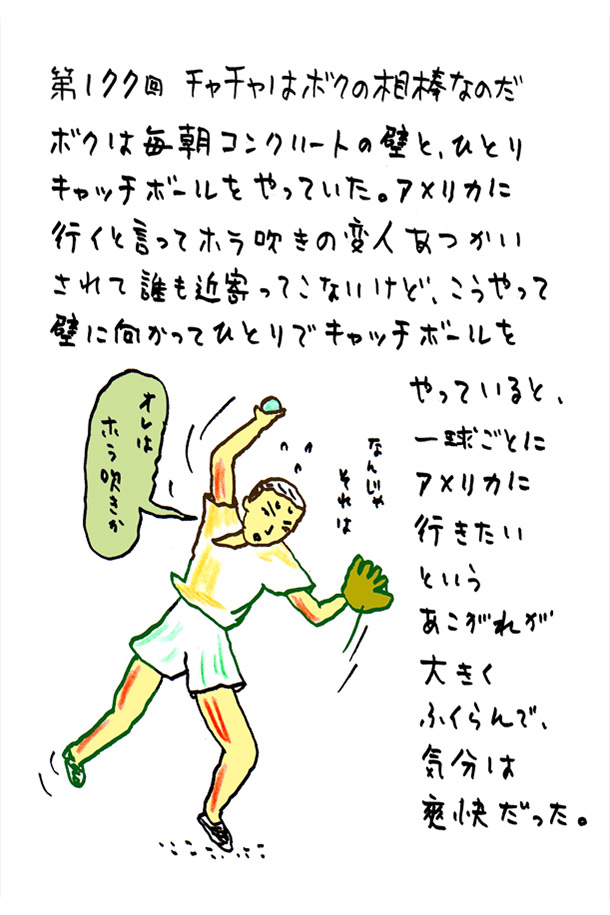 第177回 チャチャはボクの相棒なのだ
ボクは毎朝コンクリートの壁と、ひとり
キャッチボールをやっていた。アメリカに
行くと言ってホラ吹きの変人あつかい
されて誰も近寄ってこないけど、こうやって
壁に向かってひとりでキャッチボールを
やっていると、
一球ごとに
アメリカに
行きたい
という
あこがれが
大きく
ふくらんで、
気分は
爽快だった。
オレは
ホラ吹きか
なんじゃ
それは